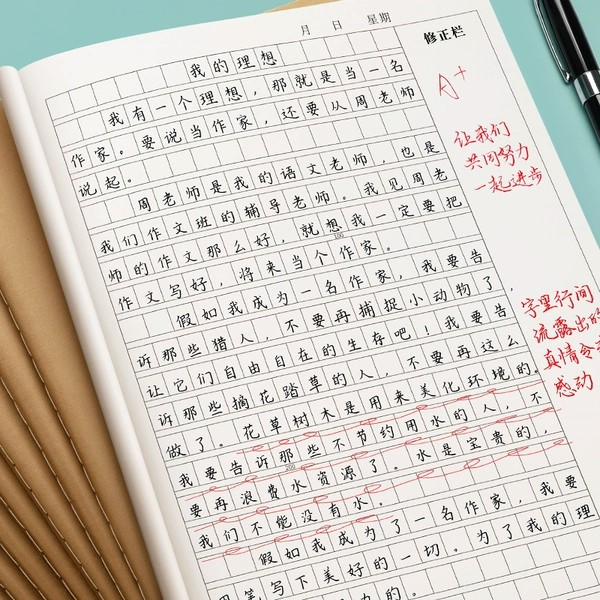 月 日 星期
修正栏
我的理想
我有一个理想，那就是当一名
作家。要说当作家，还要从周老师
说起。
周老师是我的语文老师，也是
我们作文班的辅导老师。我见周老
师的作文那么好，就想我一定要把
100
作文写好，将来当个作家。
假如我成为一名作家，我要告
诉那些猎人，不要再捕捉小动物了，
让它们自由自在的生存吧！我要告
诉那些摘花踏草的人，不要再这么
做了。花草树木是用来美化环境的。
我要告诉那些不节约用水的人，不
200
要再浪费水资源了。水是宝贵的，
我们不能没有水。
假如我成为了一名作家，我要
用笔写下美好的一切。为了我的理
力的。
A+
让我们
共同努力
一起进步
字里行间
流露出的
真情令
感动